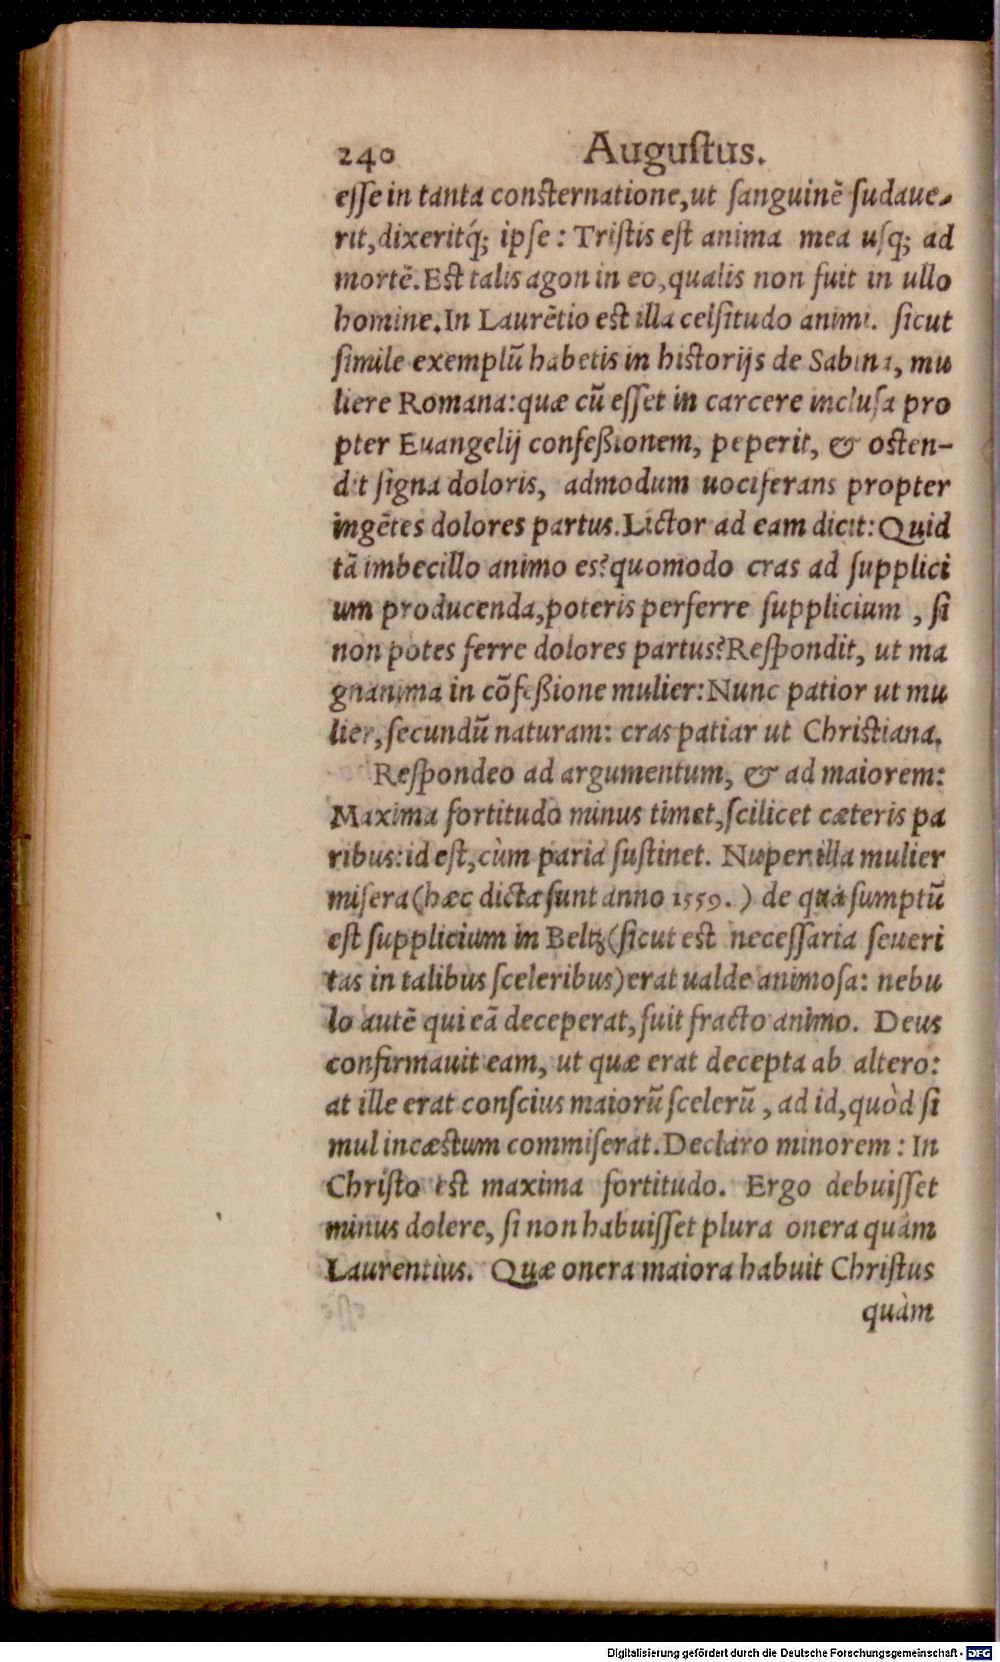 240 Augustus.
esse in tanta consternatione, ut sanguinē sudaue-
rit, dixeritq́; ipse: Tristis est anima mea usq; ad
mortē. Est talis agon in eo, qualis non fuit in ullo
homine. In Laurētio est illa celsitudo animi. sicut
simile exemplū habetis in historijs de Sabina, mu
liere Romana: quæ cū esset in carcere inclusa pro
pter Euangelij confeßionem, peperit, & osten-
dit signa doloris, admodum uociferans propter
ingētes dolores partus. Lictor ad eam dicit: Quid
tā imbecillo animo es? quomodo cras ad supplici
um producenda, poteris perferre supplicium, si
non potes ferre dolores partus? Respondit, ut ma
gnanima in cōfeßione mulier: Nunc patior ut mu
lier, secundū naturam: cras patiar ut Christiana.
Respondeo ad argumentum, & ad maiorem:
Maxima fortitudo minus timet, scilicet cæteris pa
ribus: id est, cùm paria sustinet. Nuper illa mulier
misera (hæc dicta sunt anno 1559.) de qua sumptū
est supplicium in Beltz (sicut est necessaria seueri
tas in talibus sceleribus) erat ualde animosa: nebu
lo autē qui eā deceperat, fuit fracto animo. Deus
confirmauit eam, ut quæ erat decepta ab altero:
at ille erat conscius maiorū scelerū, ad id, quòd si
mul incæstum commiserat. Declaro minorem: In
Christo est maxima fortitudo. Ergo debuisset
minus dolere, si non habuisset plura onera quàm
Laurentius. Quæ onera maiora habuit Christus
quàm
Digitalisierung gefördert durch die Deutsche Forschungsgemeinschaft - DFG